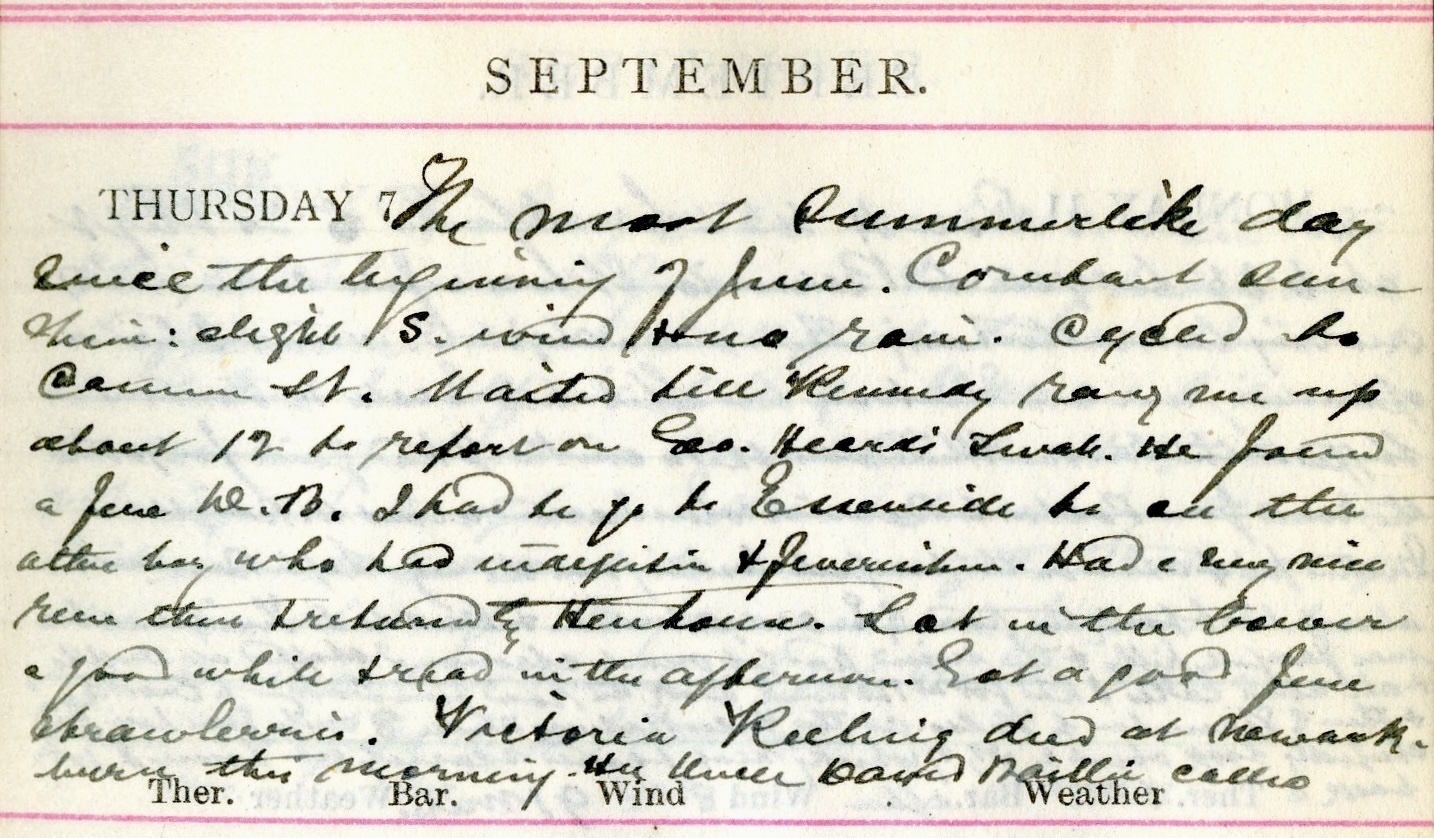 SEPTEMBER.
THURSDAY 7 The most summerlike day
since the beginning of June. Constant sun-
shine: slight S. wind & no rain. Cycled to
Cairn St. Waited till Kennedy rang me up
about 12 to report on Geo. Heard's He found
a few I had to go to to see the
other boy who had & feverishness. Had a very nice
run there & returned by Henhouse. Sat in the bower
a good while & read in the afternoon. Got a good few
strawberries. Victoria Keeling died at Newark-
burn this morning. Her Uncle David Baillie called
Ther. Bar. Wind Weather